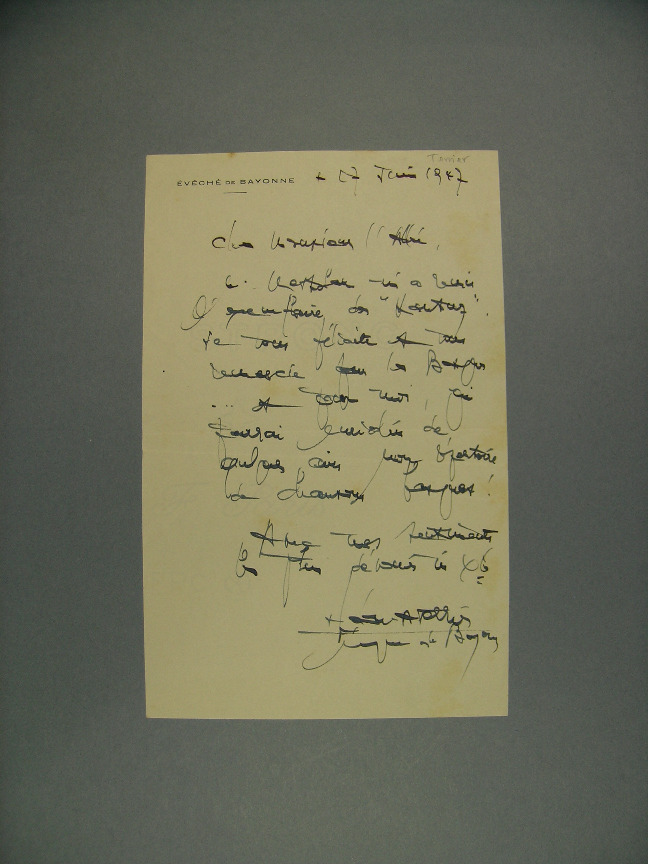 Terrier
ÉVÊCHÉ DE BAYONNE + 17 Juin 1947
Cher Monsieur l'Abbé,
m'a remis
l'exemplaire des "Kantuz".
Je vous félicite et vous
remercie pour les Basques
... et pour moi, qui
pourrai enrichir de
quelques airs mon répertoire
de chansons basques !
Avec mes sentiments
les plus dévoués in Xº
+
Évêque de Bayonne